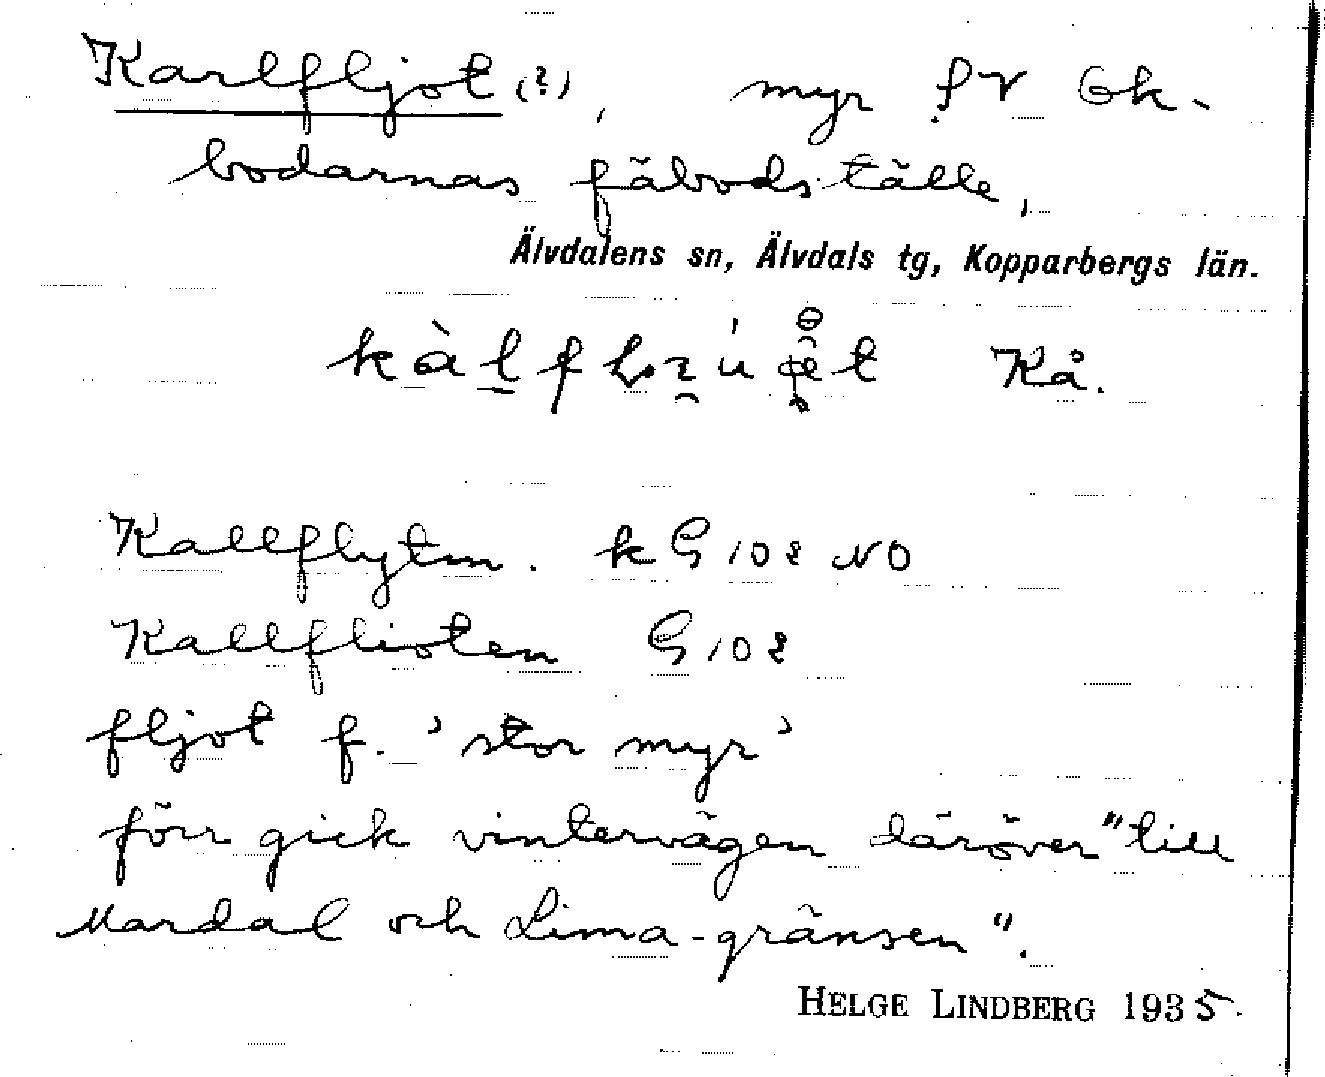 Karlfljot (?), myr SV Gk-
bodarnas fäbodställe,
Älvdalens sn, Älvdals tg, Kopparbergs län.
Kå.
Kallflytm. kG 102 NO
Kallflioten G 102
fljot f. 'stor myr'
förr gick vintervägen däröver "till
Mardal och Lima-gränsen".
HELGE LINDBERG 1935.